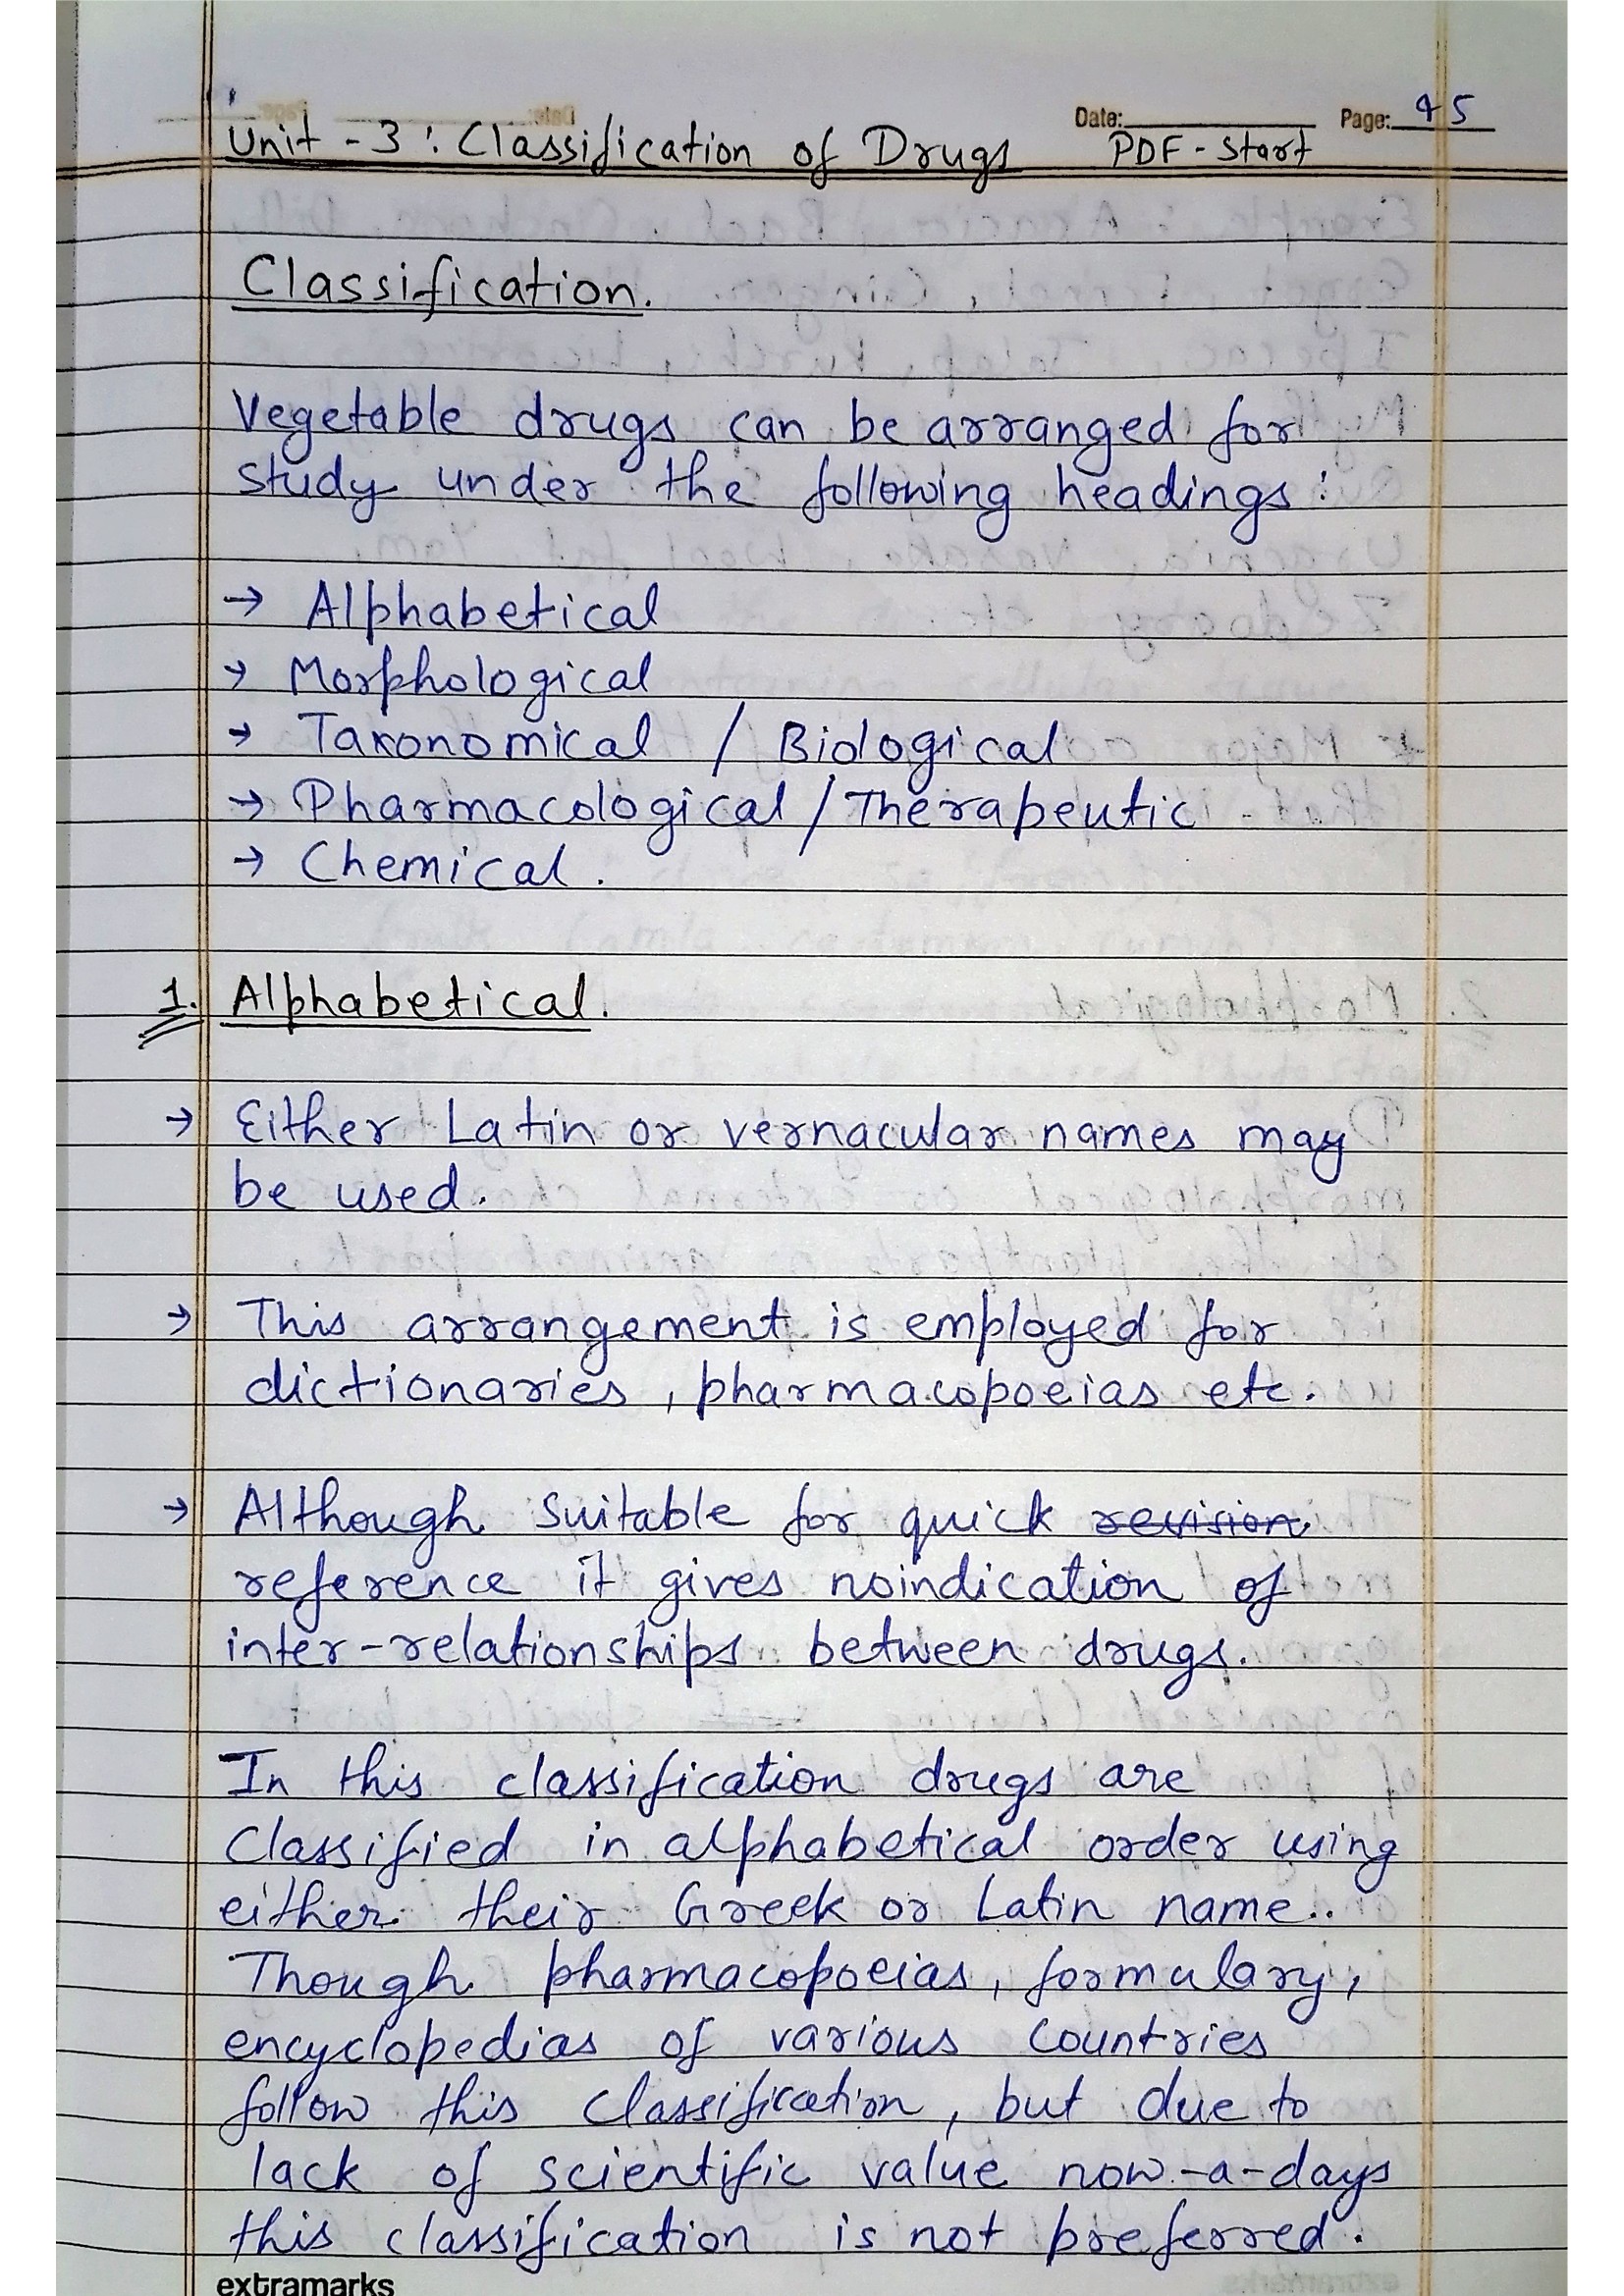 Date: Page: 45
Unit - 3 : Classification of Drugs PDF - Start
Classification.
Vegetable drugs can be arranged for
study under the following headings :
→ Alphabetical
→ Morphological
→ Taxonomical / Biological
→ Pharmacological / Therapeutic
→ Chemical.
1. Alphabetical.
→ Either Latin or vernacular names may
be used.
→ This arrangement is employed for
dictionaries, pharmacopoeias etc.
→ Although suitable for quick revision
reference it gives noindication of
inter-relationships between drugs.
In this classification drugs are
Classified in alphabetical order using
either their Greek or Latin name..
Though pharmacopoeias, formulary,
encyclopedias of various countries
follow this classification, but due to
lack of scientific value now-a-days
this classification is not preferred.
extramarks